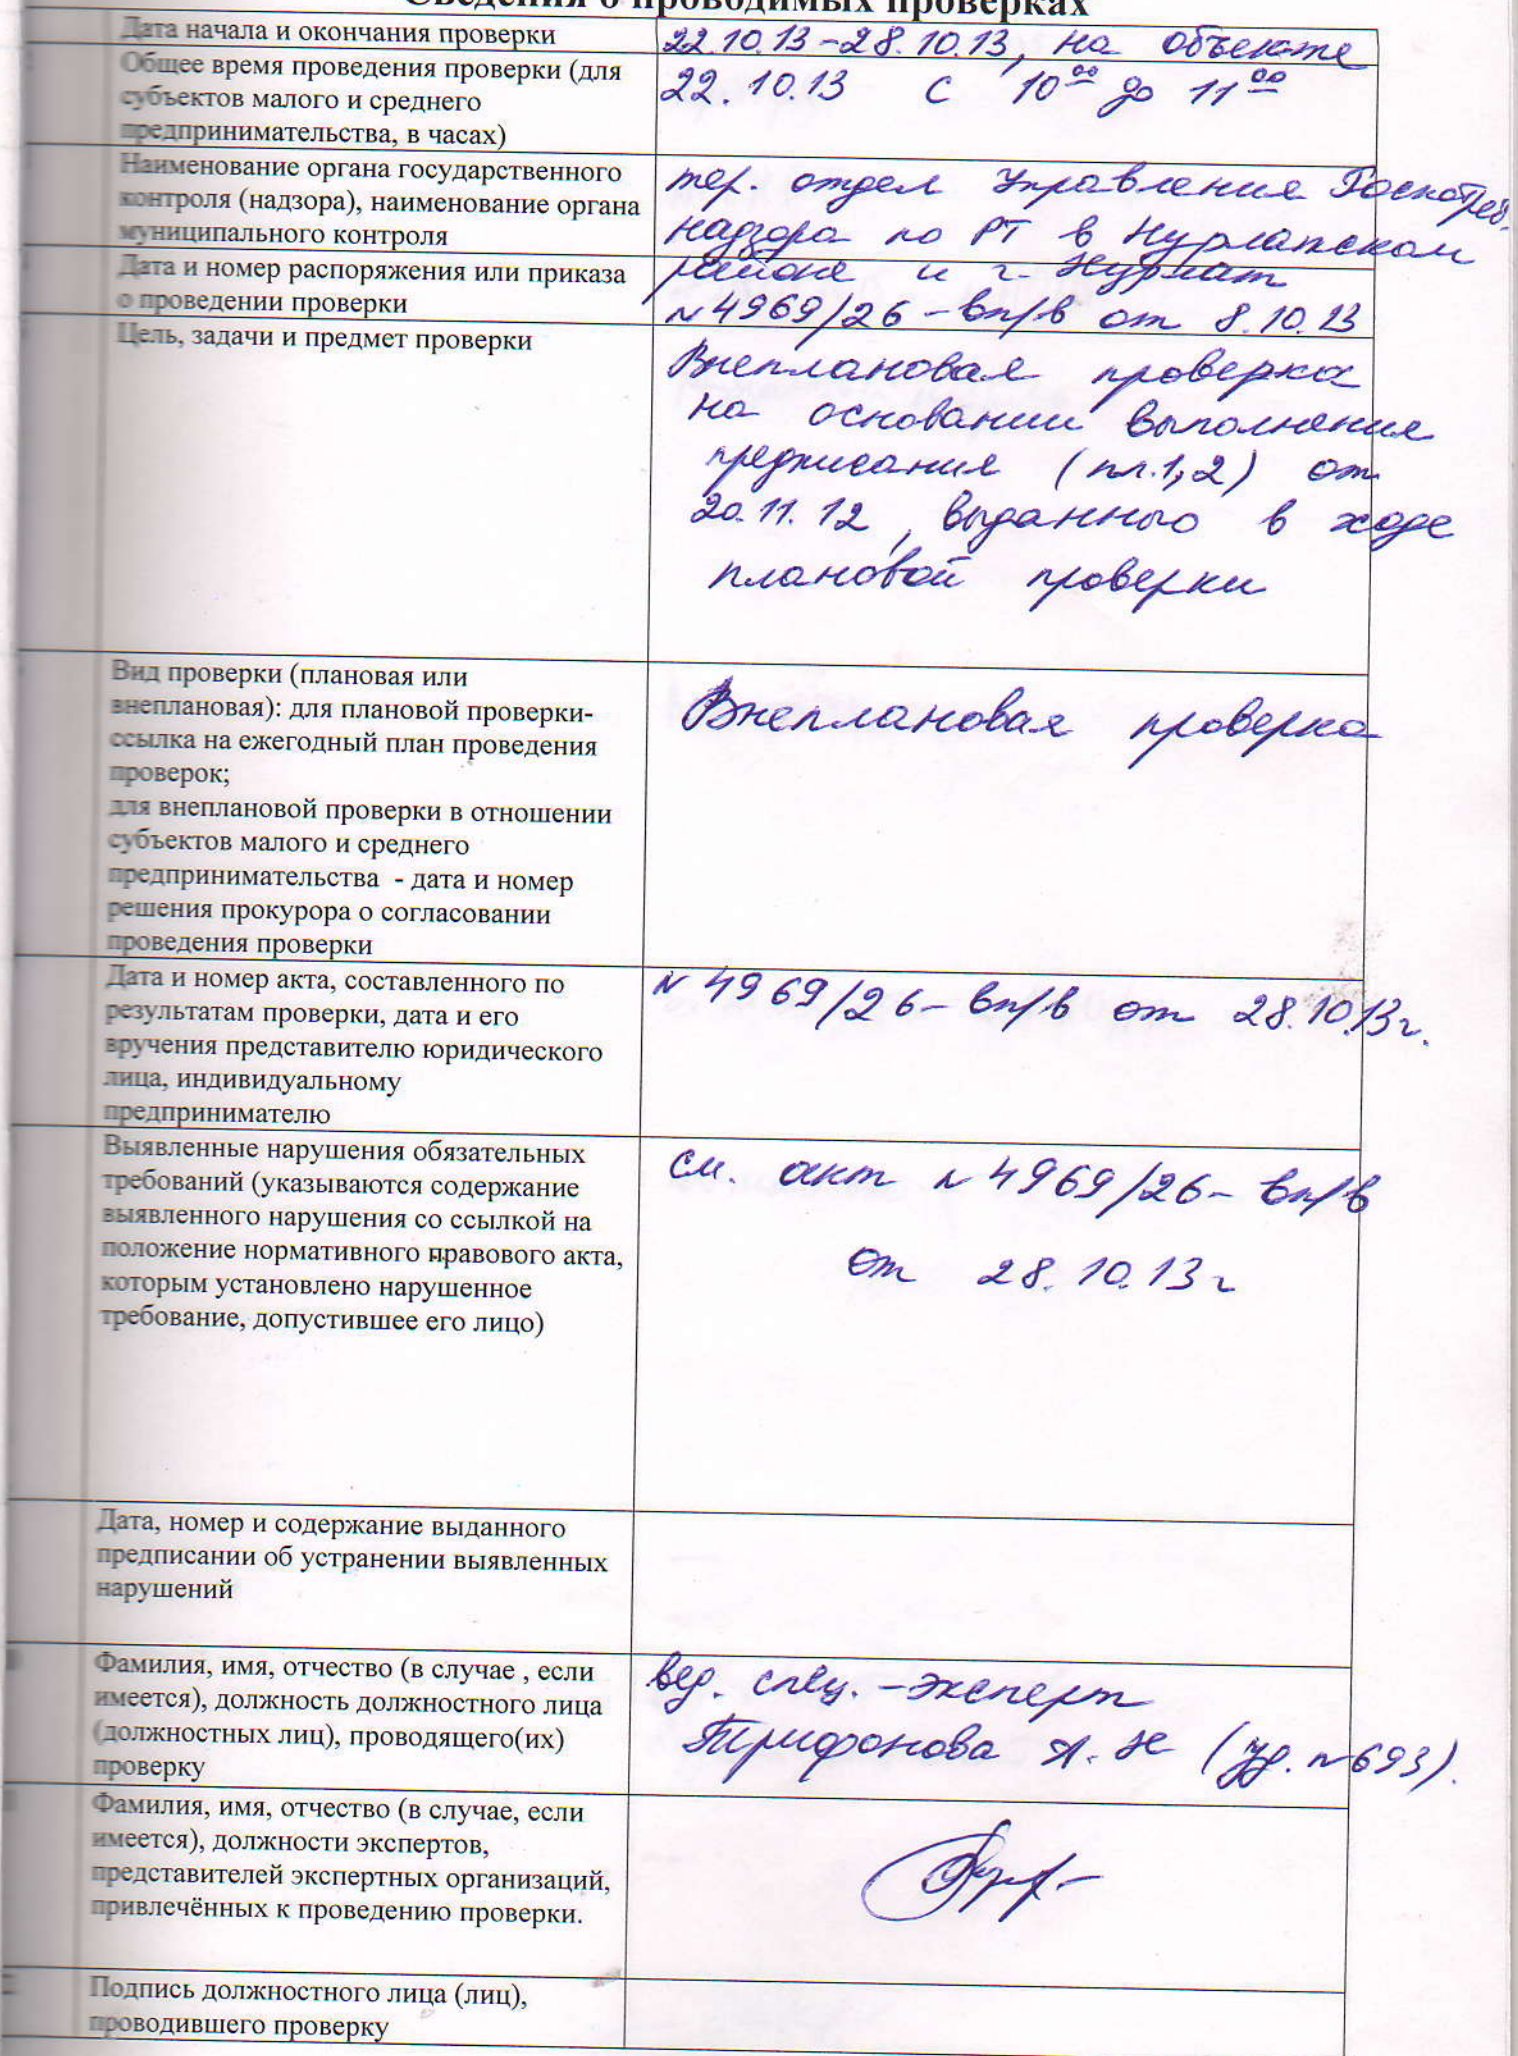 Сведения о проводимых проверках
Дата начала и окончания проверки
22.10.13-28.10.13, на объекте
Общее время проведения проверки (для
субъектов малого и среднего
предпринимательства, в часах)
22.10.13 с 10⁰⁰ до 11⁰⁰
Наименование органа государственного
контроля (надзора), наименование органа
муниципального контроля
тер. отдел Управления Роспотреб-
надзора по РТ в Нурлатском
районе и г. Нурлат
Дата и номер распоряжения или приказа
о проведении проверки
№4969/26-вп/в от 8.10.13
Цель, задачи и предмет проверки
Внеплановая проверка
на основании выполнения
предписания (пп.1,2) от
20.11.12, выданного в ходе
плановой проверки
Вид проверки (плановая или
внеплановая): для плановой проверки-
ссылка на ежегодный план проведения
проверок;
для внеплановой проверки в отношении
субъектов малого и среднего
предпринимательства - дата и номер
решения прокурора о согласовании
проведения проверки
Внеплановая проверка
Дата и номер акта, составленного по
результатам проверки, дата и его
вручения представителю юридического
лица, индивидуальному
предпринимателю
№ 4969/26-вп/в от 28.10.13г.
Выявленные нарушения обязательных
требований (указываются содержание
выявленного нарушения со ссылкой на
положение нормативного правового акта,
которым установлено нарушенное
требование, допустившее его лицо)
см. акт №4969/26-вп/в
от 28.10.13г
Дата, номер и содержание выданного
предписании об устранении выявленных
нарушений
Фамилия, имя, отчество (в случае , если
имеется), должность должностного лица
(должностных лиц), проводящего(их)
проверку
вед. спец.-эксперт
Трифонова А.Н (уд. №693).
Фамилия, имя, отчество (в случае, если
имеется), должности экспертов,
представителей экспертных организаций,
привлечённых к проведению проверки.
Подпись должностного лица (лиц),
проводившего проверку